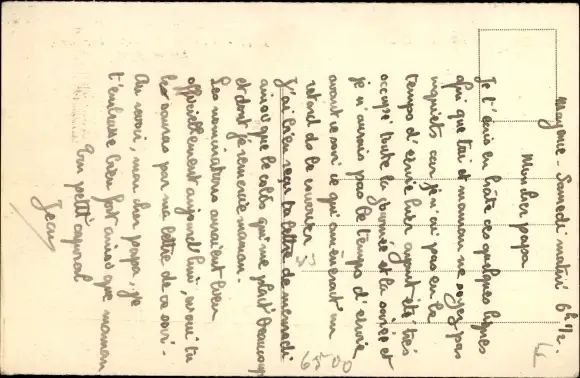 Mayence - Samedi matin 6h 1/2.
Mon cher papa
Je t'écris en hâte ces quelques lignes
afin que toi et maman ne soyez pas
inquiets car je n'ai pas eu le
temps d'écrire hier ayant été très
occupé toute la journée et la soirée et
je n'aurais pas le temps d'écrire
avant ce soir ce qui amènerait un
retard de courrier
J'ai bien reçu ta lettre de mercredi
ainsi que le colis qui me plaît beaucoup
et dont je remercie maman.
Les nominations avaient lieu
officiellement aujourd'hui,
tu les sauras par ma lettre de ce soir.
Au revoir, mon cher papa, je
t'embrasse bien fort ainsi que maman
Ton petit caporal
Jean
6500